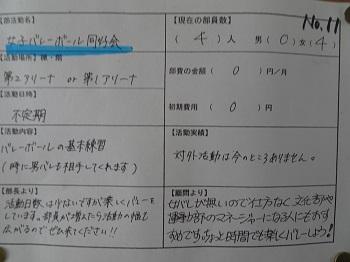 No.11
【部活動名】
女子バレーボール同好会
【現在の部員数】
(4)人 男(0)女(4)
【活動場所】棟・階
第2アリーナ or 第1アリーナ
部費の金額 (0) 円/月
【活動日時】
不定期
初期費用 (0) 円
【活動内容】
バレーボールの基本練習
(時に男バレも相手してくれます)
【活動実績】
対外活動は今のところありません。
【部長より】
活動日数は少ないですが楽しくバレーを
しています。部員が増えたら活動の幅も
広がるのでぜひ来てください!!
【顧問より】
女バレが無いので仕方なく文化部や
運動部のマネージャーになる人にもおす
すめです。ちょっと時間でも楽しくバレーしよう!